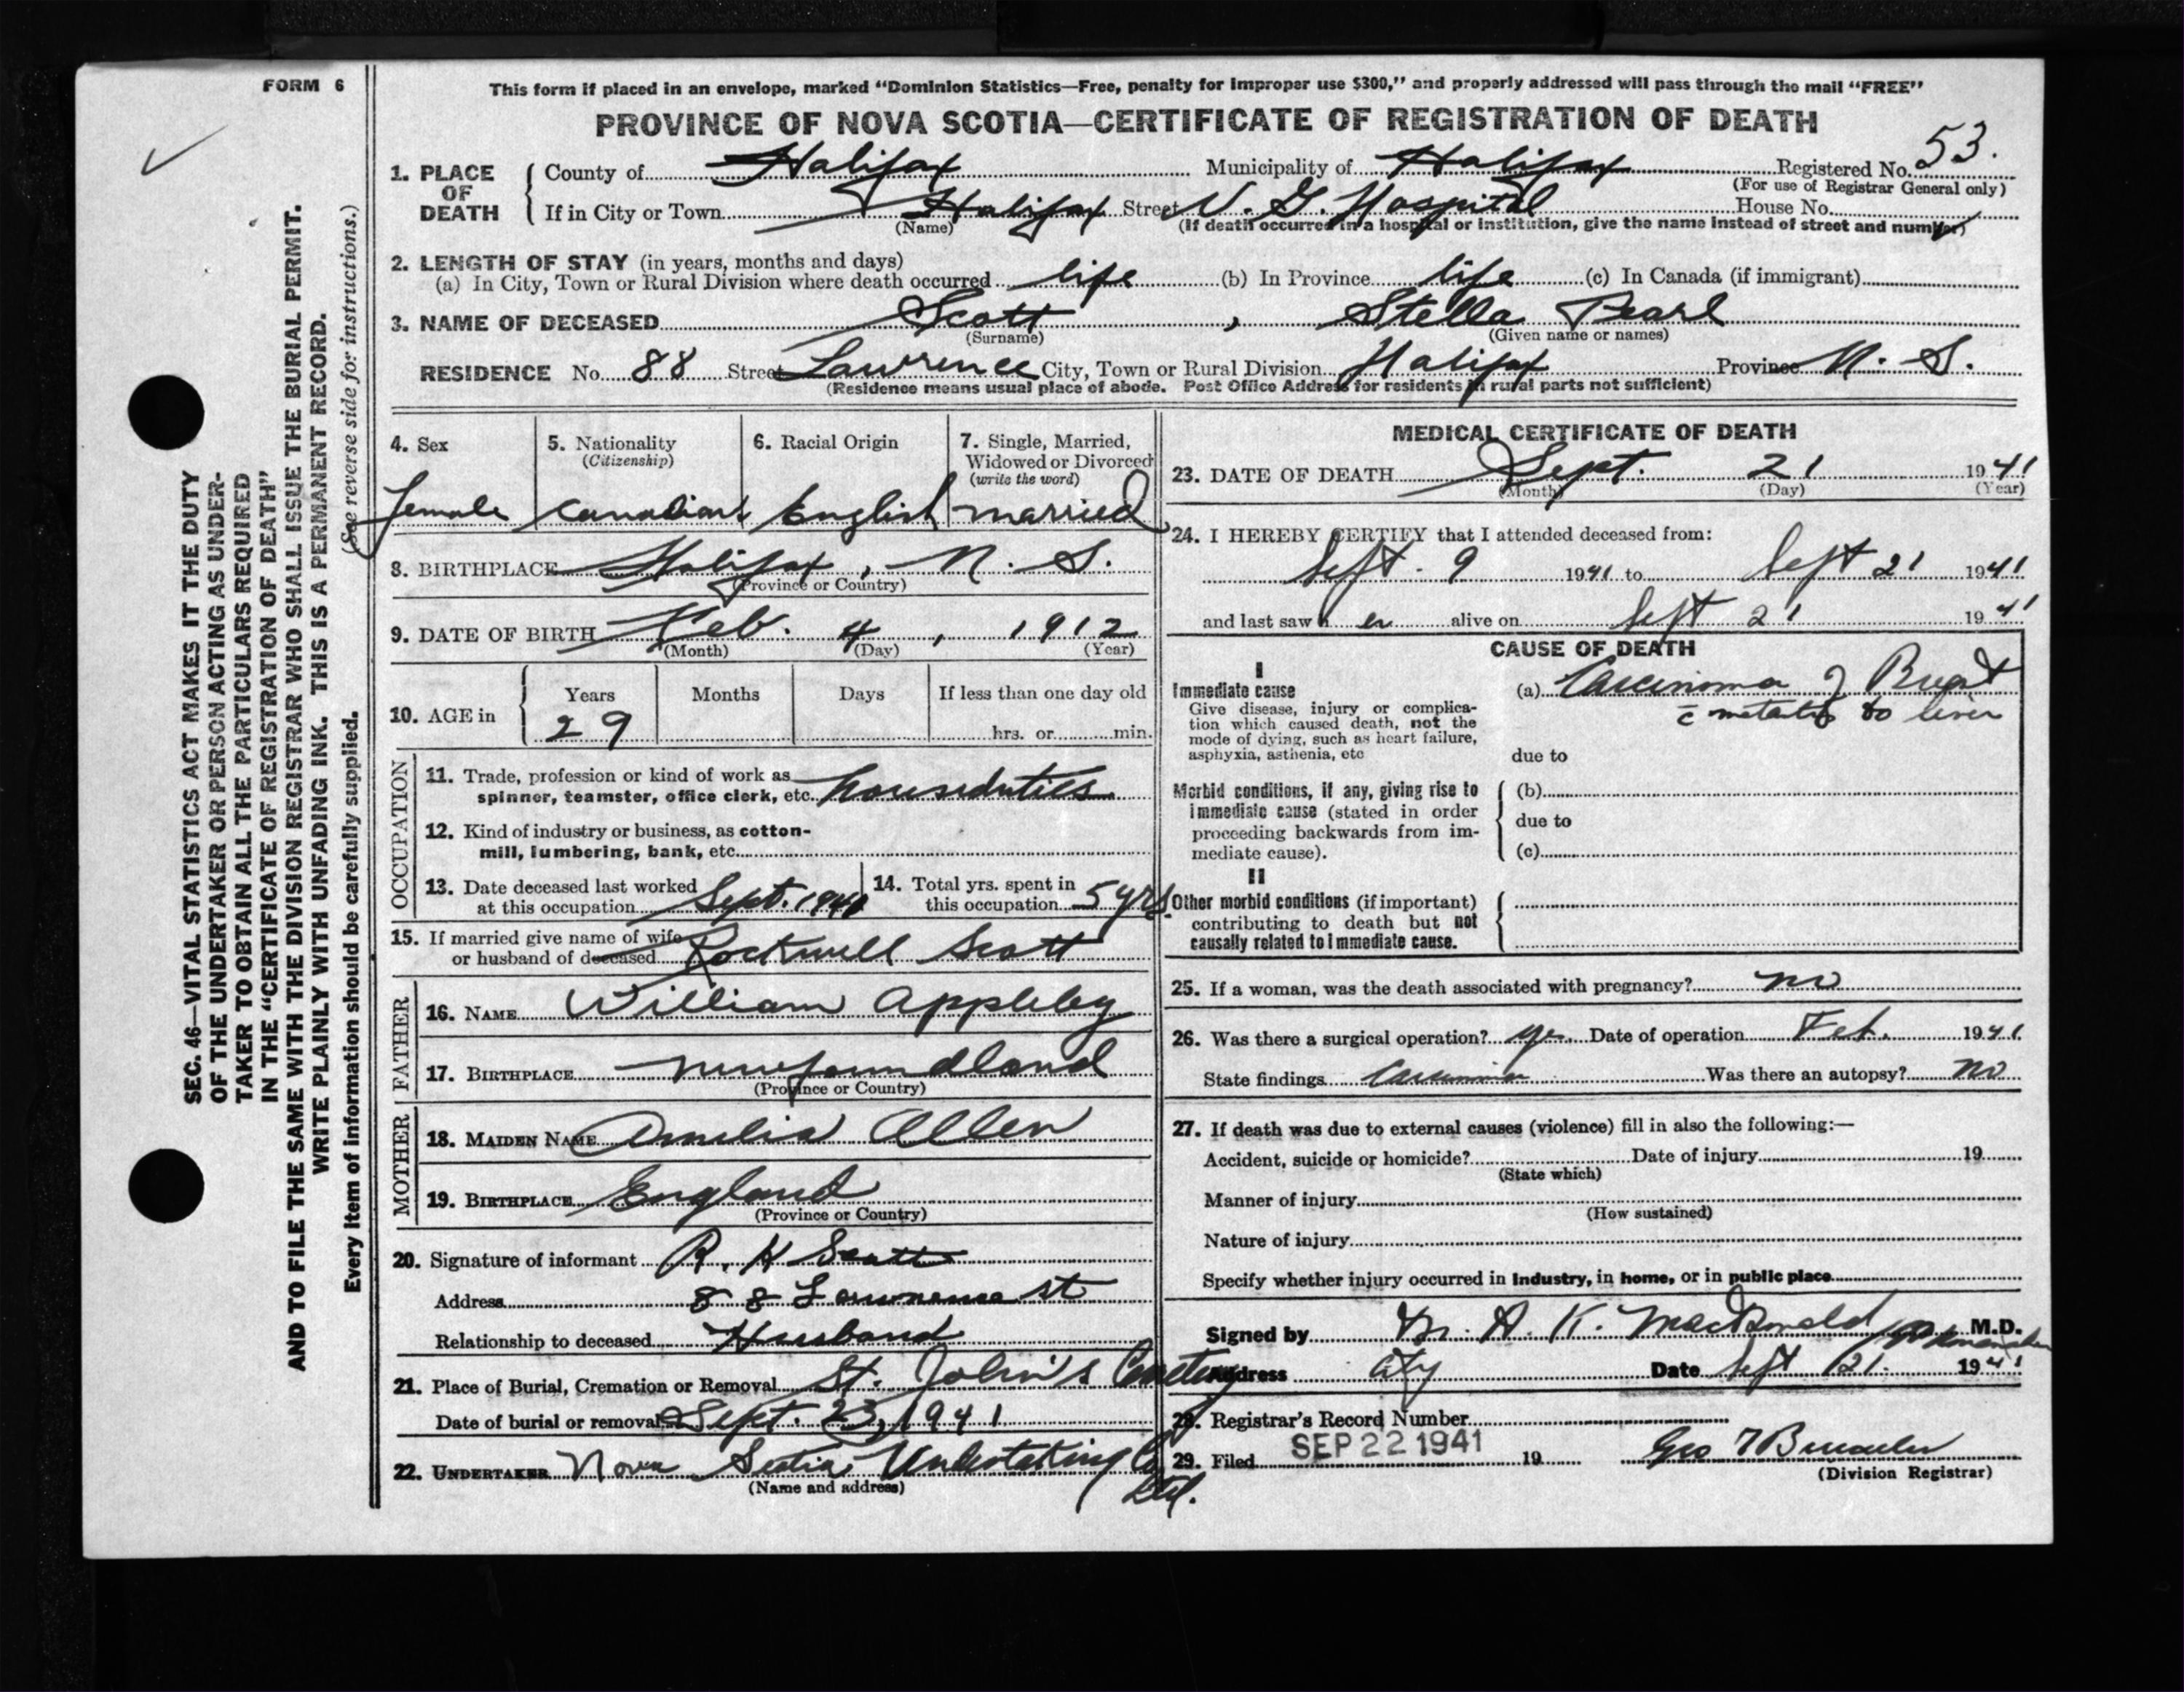 FORM 6
This form if placed in an envelope, marked "Dominion Statistics—Free, penalty for improper use $300," and properly addressed will pass through the mail "FREE"
PROVINCE OF NOVA SCOTIA—CERTIFICATE OF REGISTRATION OF DEATH
1. PLACE OF DEATH County of Halifax Municipality of Halifax Registered No. 53.
(For use of Registrar General only)
If in City or Town Halifax Street V. G. Hospital House No.
(Name) (If death occurred in a hospital or institution, give the name instead of street and number)
2. LENGTH OF STAY (in years, months and days)
(a) In City, Town or Rural Division where death occurred life (b) In Province life (c) In Canada (if immigrant)
3. NAME OF DECEASED Scott, Stella Pearl
(Surname) (Given name or names)
RESIDENCE No. 88 Street Lawrence City, Town or Rural Division Halifax Province N. S.
(Residence means usual place of abode. Post Office Address for residents in rural parts not sufficient)
4. Sex 5. Nationality (Citizenship) 6. Racial Origin 7. Single, Married, Widowed or Divorced (write the word)
female Canadian English married
8. BIRTHPLACE Halifax, N. S.
(Province or Country)
9. DATE OF BIRTH Feb. 4, 1912
(Month) (Day) (Year)
10. AGE in Years Months Days If less than one day old
29 hrs. or min.
OCCUPATION
11. Trade, profession or kind of work as
spinner, teamster, office clerk, etc. houseduties
12. Kind of industry or business, as cotton-
mill, lumbering, bank, etc.
13. Date deceased last worked at this occupation Sept. 1940
14. Total yrs. spent in this occupation 5 yrs.
15. If married give name of wife
or husband of deceased Rockwell Scott
FATHER
16. NAME William Appleby
17. BIRTHPLACE Newfoundland
(Province or Country)
MOTHER
18. MAIDEN NAME Amelia Allen
19. BIRTHPLACE England
(Province or Country)
20. Signature of informant R. H Scott
Address 88 Lawrence St
Relationship to deceased Husband
21. Place of Burial, Cremation or Removal St. John's Cemetery
Date of burial or removal Sept. 23, 1941
22. UNDERTAKER Nova Scotia Undertaking Co Ltd.
(Name and address)
MEDICAL CERTIFICATE OF DEATH
23. DATE OF DEATH Sept. 21 1941
(Month) (Day) (Year)
24. I HEREBY CERTIFY that I attended deceased from:
Sept. 9 1941 to Sept 21 1941
and last saw her alive on Sept 21 1941
CAUSE OF DEATH
I
Immediate cause
Give disease, injury or complica-
tion which caused death, not the
mode of dying, such as heart failure,
asphyxia, asthenia, etc
(a) Carcinoma of Breast
c̄ metastasis to liver
due to
Morbid conditions, if any, giving rise to
immediate cause (stated in order
proceeding backwards from im-
mediate cause).
(b)
due to
(c)
II
Other morbid conditions (if important)
contributing to death but not
causally related to immediate cause.
25. If a woman, was the death associated with pregnancy? no
26. Was there a surgical operation? yes Date of operation Feb. 1941
State findings Carcinoma Was there an autopsy? no
27. If death was due to external causes (violence) fill in also the following:—
Accident, suicide or homicide? Date of injury 19
(State which)
Manner of injury
(How sustained)
Nature of injury
Specify whether injury occurred in industry, in home, or in public place
Signed by M. A. K. MacDonald M.D.
Address City Date Sept 21. 1941
28. Registrar's Record Number
29. Filed SEP 22 1941 19
(Division Registrar)
SEC. 46—VITAL STATISTICS ACT MAKES IT THE DUTY
OF THE UNDERTAKER OR PERSON ACTING AS UNDER-
TAKER TO OBTAIN ALL THE PARTICULARS REQUIRED
IN THE "CERTIFICATE OF REGISTRATION OF DEATH"
AND TO FILE THE SAME WITH THE DIVISION REGISTRAR WHO SHALL ISSUE THE BURIAL PERMIT.
WRITE PLAINLY WITH UNFADING INK. THIS IS A PERMANENT RECORD.
Every item of information should be carefully supplied. (See reverse side for instructions.)